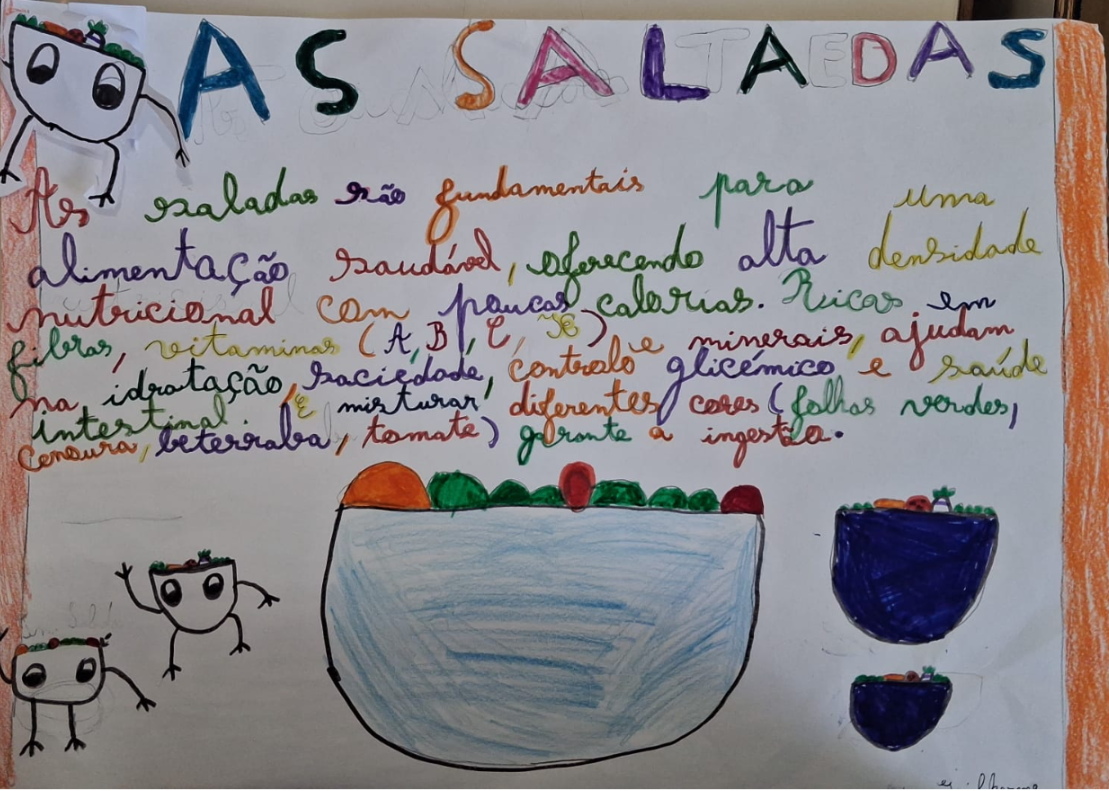 AS SALADAS
As saladas são fundamentais para uma
alimentação saudável, oferecendo alta densidade
nutricional com poucas calorias. Ricas em
fibras, vitaminas (A, B, C, K) e minerais, ajudam
na idratação, saciedade, controlo glicémico e saúde
intestinal. E misturar diferentes cores (folhas verdes,
cenoura, beterraba, tomate) garante a ingestão.